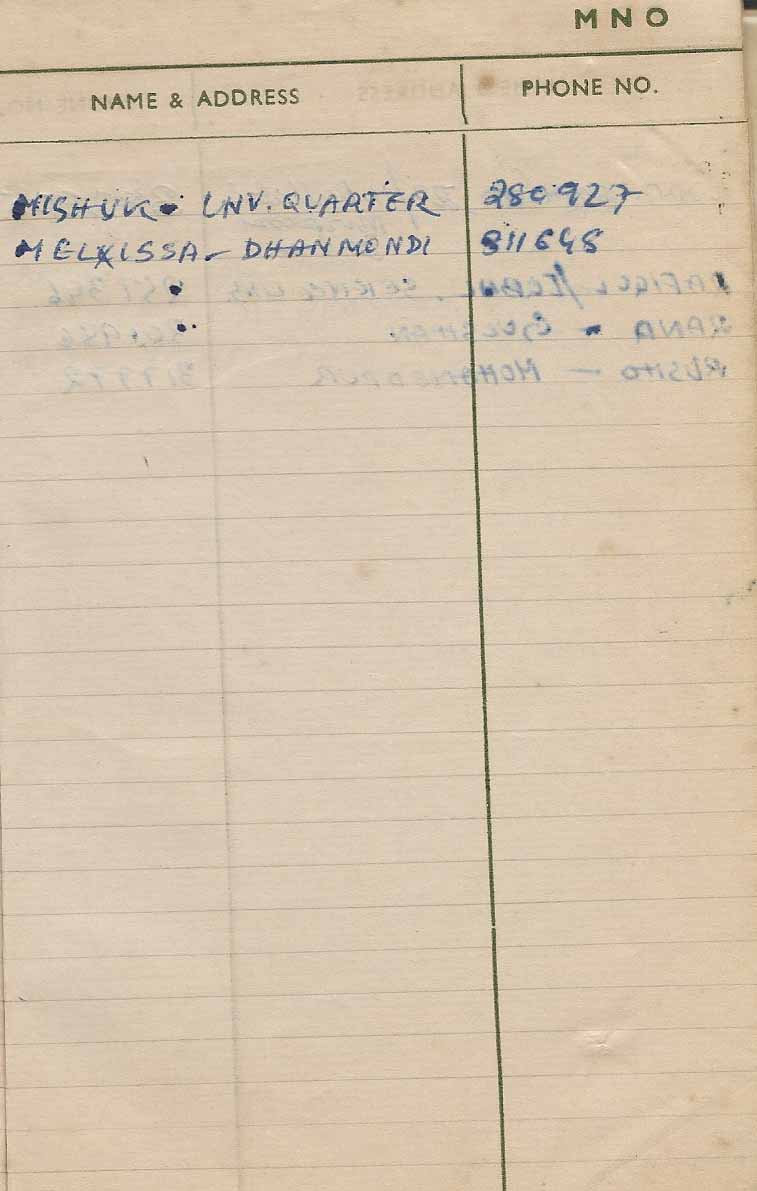 M N O
NAME & ADDRESS PHONE NO.
MISHUK - UNV. QUARTER 280927
MELISSA - DHANMONDI 811648